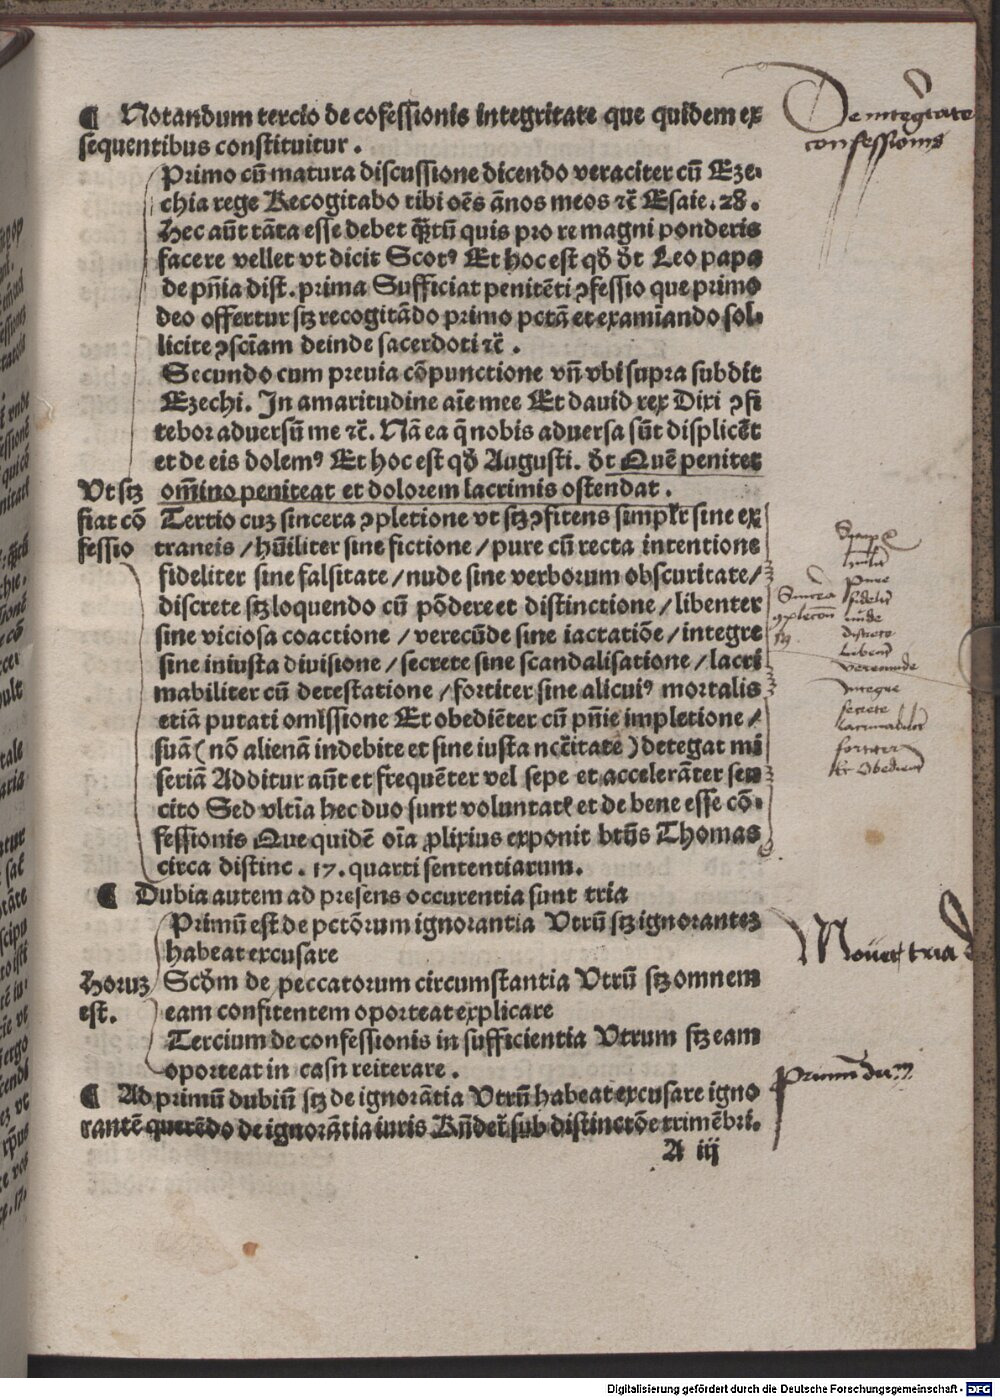 ¶ Notandum tercio de cofessionis integritate que quidem ex
sequentibus constituitur.
Primo cū matura discussione dicendo veraciter cū Eze-
chia rege Recogitabo tibi oēs ānos meos ⁊c̄ Esaie. 28.
Hec aūt tāta esse debet q̄tū quis pro re magni ponderis
facere vellet vt dicit Scotꝰ Et hoc est qḋ ḋt Leo papa
de pn̄ia dist. prima Sufficiat penitēti ꝯfessio que primo
deo offertur stꝫ recogitādo primo pctā et examiando sol-
licite ꝯsciam deinde sacerdoti ⁊c̄.
Secundo cum preuia cōpunctione vn̄ vbi supra subdit
Ezechi. In amaritudine aīe mee Et dauid rex Dixi ꝯfi
tebor aduersū me ⁊c̄. Nā ea q̄ nobis aduersa sūt displicēt
et de eis dolemꝰ Et hoc est qḋ Augusti. ḋt Quē penitet
om̄ino peniteat et dolorem lacrimis ostendat.
Vt stꝫ
fiat cō
fessio
Tertio cuꝫ sincera ꝯpletione vt stꝫ ꝯfitens simplr̄ sine ex
traneis / hūiliter sine fictione / pure cū recta intentione
fideliter sine falsitate / nude sine verborum obscuritate /
discrete stꝫ loquendo cū pōdere et distinctione / libenter
sine viciosa coactione / verecūde sine iactatiōe / integre
sine iniusta diuisione / secrete sine scandalisatione / lacri
mabiliter cū detestatione / fortiter sine alicuiꝰ mortalis
etiā putati omissione Et obediēter cū pn̄ie impletione /
suā (nō alienā indebite et sine iusta ncc̄itate) detegat mi
seriā Additur aūt et frequēter vel sepe et acceleranter seu
cito Sed vltia hec duo sunt voluntatꝭ et de bene esse cō-
fessionis Que quidē oīa ꝓlixius exponit btūs Thomas
circa distinc. 17. quarti sententiarum.
¶ Dubia autem ad presens occurentia sunt tria
Horuꝫ
est.
Primū est de pctōrum ignorantia Vtrū stꝫ ignorantes
habeat excusare
Scḋm de peccatorum circumstantia Vtrū stꝫ omnem
eam confitentem oporteat explicare
Tercium de confessionis in sufficientia Vtrum stꝫ eam
oporteat in casn reiterare.
¶ Ad primū dubiū stꝫ de ignorātia Vtrū habeat excusare igno
rantē querēdo de ignorātia iuris Rn̄der̄ sub distinctōe trimēbri.
A iij
De integritate
confessionis
Sincera
ꝯpletion
Simpl
humil
pure
fidelit
nude
discrete
libent
verecunde
integre
secrete
lacrimabilit
fortiter
Et obedient
Mouet tria d
Primū du